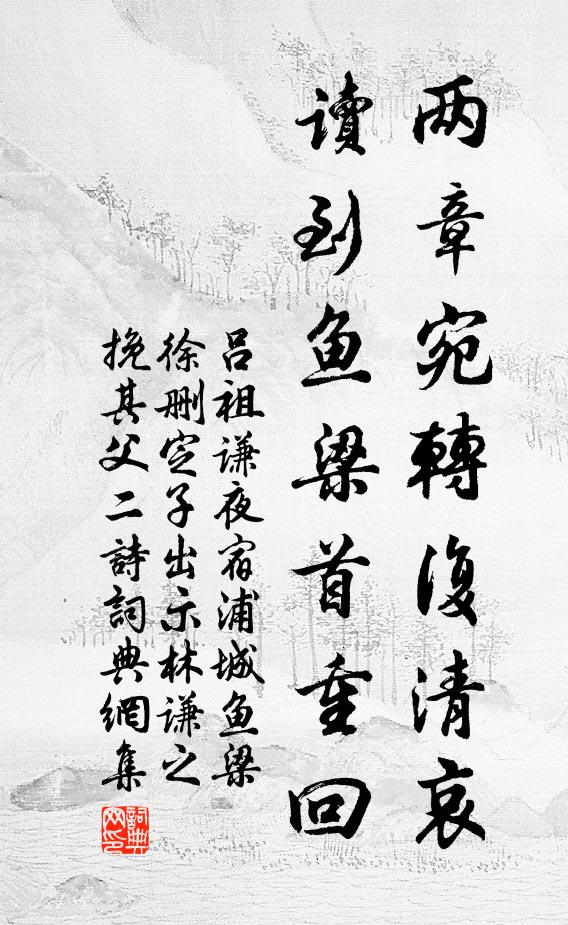 两章宛轉復清哀
讀到鱼梁首重回
吕祖谦夜宿浦城鱼梁
徐删定子出示林谦之
挽其父二詩詞典網集
詞典
网印